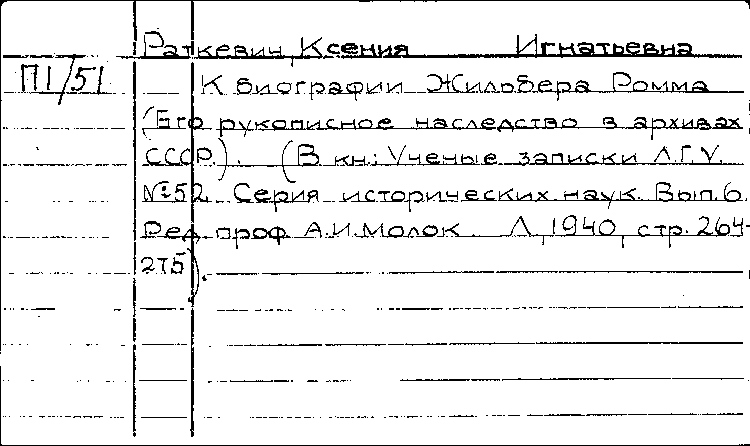 Раткевич, Ксения Игнатьевна
П1/51 К биографии Жильбера Ромма
(Его рукописное наследство в архивах
СССР.). (В кн.: Ученые записки Л.Г.У.
№52. Серия исторических наук. Вып.6.
Ред. проф. А.И.Молок. Л., 1940, стр. 264-
275).